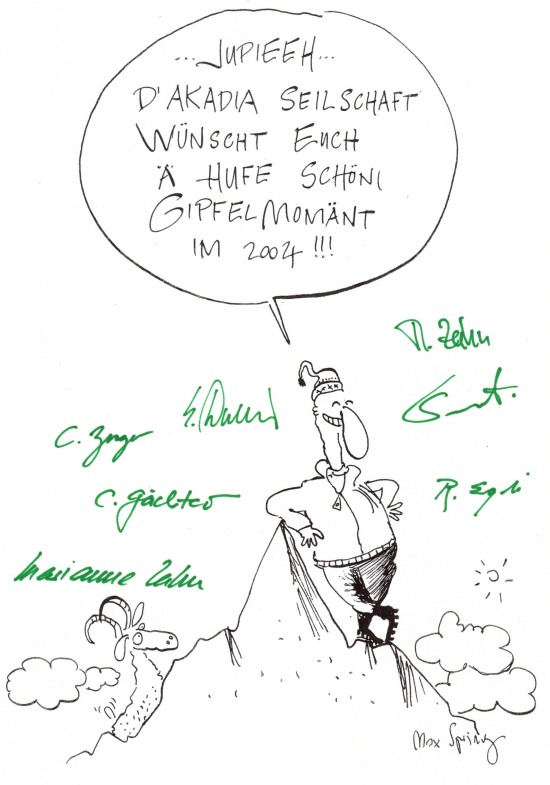 ...JUPIEEH...
D'AKADIA SEILSCHAFT
WÜNSCHT EUCH
Ä HUFE SCHÖNI
GIPFELMOMÄNT
IM 2004 !!!
C. Gächter
R. Egli
Marianne Zehn
Max Spring